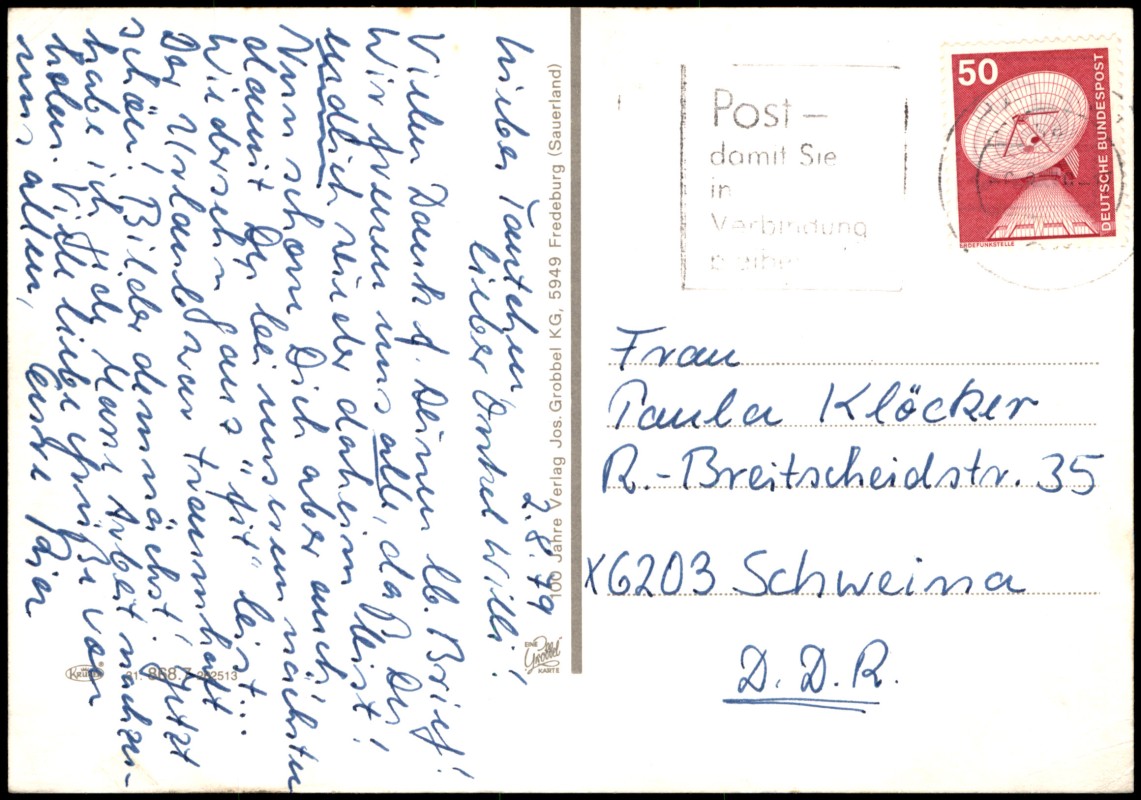 2.8.79
Liebes Tantchen,
lieber Onkel Willi!
Vielen Dank f. Deinen lb. Brief!
Wir freuen uns alle, daß Du
endlich wieder daheim bist!
Nun schon Dich aber auch,
damit Du bei unserem nächsten
Wiedersehn ganz "fit" bist...
Der Urlaub war traumhaft
schön! Bilder demnächst! Jetzt
habe ich jede Menge Arbeit nachzu-
holen. Viele liebe Grüße von
uns allen,
Eure
100 Jahre Verlag Jos. Grobbel KG, 5949 Fredeburg (Sauerland)
EINE
Grobbel
KARTE
KRÜGER
868.7
Post –
damit Sie
in
Verbindung
bleiben
50
DEUTSCHE BUNDESPOST
ERDEFUNKSTELLE
Frau
Paula Klöcker
R.-Breitscheidstr. 35
X6203 Schweina
D. D. R.